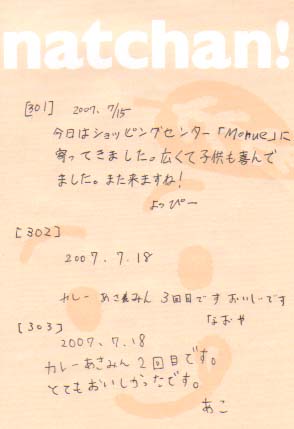 natchan!
[301] 2007. 7/15
今日はショッピングセンター「Monue」に
寄ってきました。広くて子供も喜んで
ました。また来ますね!
よっぴー
[302]
2007. 7. 18
カレー あさみん 3回目です おいしーです
なおや
[303]
2007. 7. 18
カレーあさみん 2回目です。
とてもおいしかったです。
あこ